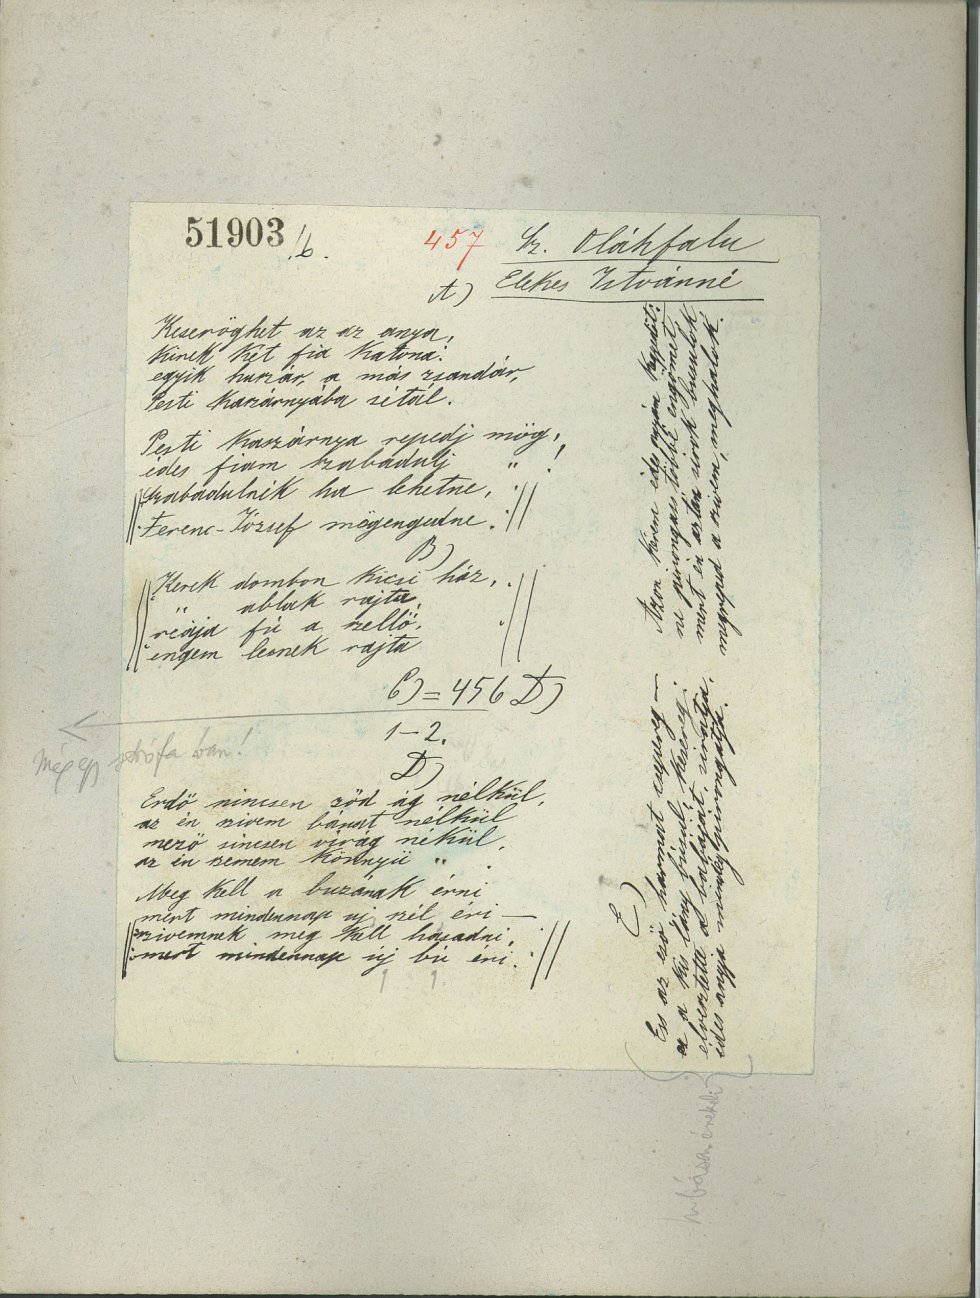 51903/b.
457
Sz. Oláhfalu
Elekes Istvánné
A)
Keseröghet az az anya,
kinek két fia katona.
egyik huszár, a más zsandár,
Pesti kaszárnyába sétál.
Pesti kaszárnya repedj mög,
édes fiam szabadulj " !
Szabadulnik ha lehetne,
Ferenc-József mögengedne.
B)
Kerek dombon kicsi ház,
" ablak rajta,
reája fú a szellő,
engem lesnek rajta
C) = 456 D)
1-2.
Még egy strófa van!
D)
Erdő nincsen zöd ág nélkül,
az én szivem bánat nélkül
mező sincsen virág nékül,
az én szemem könnyü " .
Meg kell a buzának érni
mert mindennap uj szél éri —
szivemnek meg kell hasadni,
mert mindennap új bú éri.
E)
Ess az eső harmat csepereg —
ez a kis lány búsul kesereg.
elvesztette a babáját, siratja,
édes anyja mindég pirongatja.
Azon kérem édes anyám kegyedöt,
ne pirongass többé engömet,
mert én aztán sirok busulok
megreped a szivem, meghalok.